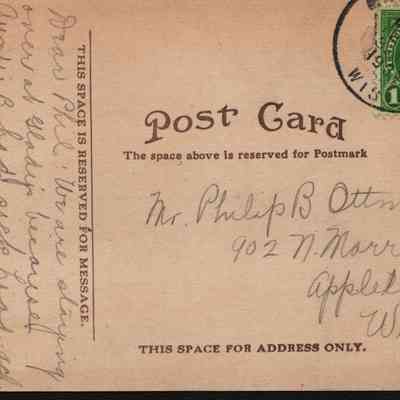 Dear Phil: We are staying
over at Gladys because
had sick head ach
THIS SPACE IS RESERVED FOR MESSAGE.
WIS
1
Post Card
The space above is reserved for Postmark
Mr. Philip B Ottm
902 N. Morr
Applet
W
THIS SPACE FOR ADDRESS ONLY.